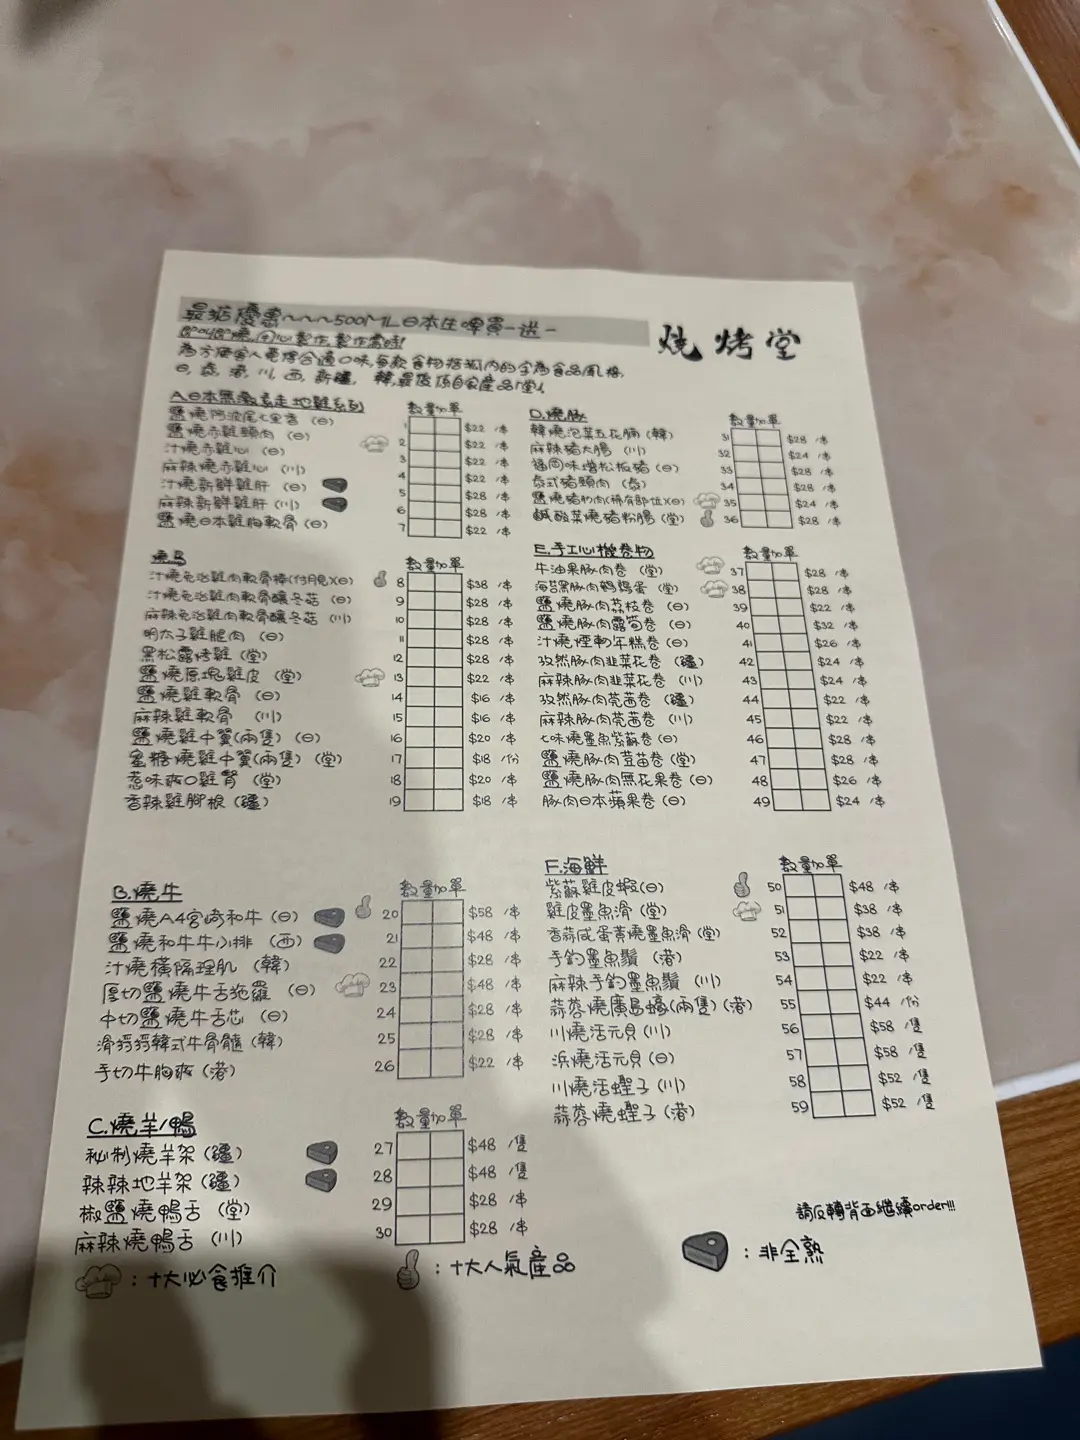 最茄優惠~~~500ML日本生啤買一送一
燒烤堂
即叫即燒,用心製作,製作需時!
為方便客人更能合適口味,每款食物括弧內的字為食品風格,
日,泰,港,川,西,新疆,韓,最後項自家產品「堂」
A.日本無激素走地雞系列 數量 加單
鹽燒阿波尾七里香 (日) 1 $22 /串
鹽燒赤雞頸肉 (日) 2 $22 /串
汁燒赤雞心 (日) 3 $22 /串
麻辣燒赤雞心 (川) 4 $22 /串
汁燒新鮮雞肝 (日) 5 $28 /串
麻辣新鮮雞肝 (川) 6 $28 /串
鹽燒日本雞胸軟骨 (日) 7 $22 /串
燒鳥 數量 加單
汁燒免治雞肉軟骨棒(付月見)(日) 8 $38 /串
汁燒免治雞肉軟骨釀冬菇 (日) 9 $28 /串
麻辣免治雞肉軟骨釀冬菇 (川) 10 $28 /串
明太子雞腿肉 (日) 11 $28 /串
黑松露烤雞 (堂) 12 $28 /串
鹽燒原塊雞皮 (堂) 13 $22 /串
鹽燒雞軟骨 (日) 14 $16 /串
麻辣雞軟骨 (川) 15 $16 /串
鹽燒雞中翼(兩隻) (日) 16 $20 /串
蜜糖燒雞中翼(兩隻) (堂) 17 $18 /份
惹味爽口雞腎 (堂) 18 $20 /串
香辣雞腳根 (疆) 19 $18 /串
B.燒牛 數量 加單
鹽燒A4宮崎和牛 (日) 20 $58 /串
鹽燒和牛牛小排 (西) 21 $48 /串
汁燒橫隔理肌 (韓) 22 $28 /串
厚切鹽燒牛舌拖羅 (日) 23 $48 /串
中切鹽燒牛舌芯 (日) 24 $28 /串
滑捋捋韓式牛骨髓 (韓) 25 $28 /串
手切牛胸爽 (港) 26 $22 /串
C.燒羊/鴨 數量 加單
秘制燒羊架 (疆) 27 $48 /隻
辣辣地羊架 (疆) 28 $48 /隻
椒鹽燒鴨舌 (堂) 29 $28 /串
麻辣燒鴨舌 (川) 30 $28 /串
D.燒豚 數量 加單
韓燒泡菜五花腩 (韓) 31 $28 /串
麻辣豬大腸 (川) 32 $24 /串
福岡味增松板豬 (日) 33 $28 /串
泰式豬頸肉 (泰) 34 $28 /串
鹽燒豬肋肉(稀有部位)(日) 35 $24 /串
鹹酸菜燒豬粉腸 (堂) 36 $28 /串
E.手工心機卷物 數量 加單
牛油果豚肉卷 (堂) 37 $28 /串
海苔黑豚肉鵪鶉蛋 (堂) 38 $28 /串
鹽燒豚肉荔枝卷 (日) 39 $22 /串
鹽燒豚肉露筍卷 (日) 40 $32 /串
汁燒煙肉年糕卷 (日) 41 $26 /串
孜然豚肉韭菜花卷 (疆) 42 $24 /串
麻辣豚肉韭菜花卷 (川) 43 $24 /串
孜然豚肉芫茜卷 (疆) 44 $22 /串
麻辣豚肉芫茜卷 (川) 45 $22 /串
七味燒墨魚紫蘇卷 (日) 46 $28 /串
鹽燒豚肉荳苗卷 (堂) 47 $28 /串
鹽燒豚肉無花果卷 (日) 48 $26 /串
豚肉日本蘋果卷 (日) 49 $24 /串
F.海鮮 數量 加單
紫蘇雞皮蝦(日) 50 $48 /串
雞皮墨魚滑 (堂) 51 $38 /串
香蒜咸蛋黃燒墨魚滑 (堂) 52 $38 /串
手釣墨魚鬚 (港) 53 $22 /串
麻辣手釣墨魚鬚 (川) 54 $22 /串
蒜蓉燒廣島蠔(兩隻) (港) 55 $44 /份
川燒活元貝 (川) 56 $58 /隻
浜燒活元貝 (日) 57 $58 /隻
川燒活蟶子 (川) 58 $52 /隻
蒜蓉燒蟶子 (港) 59 $52 /隻
請反轉背面繼續order!!!
:十大必食推介
:十大人氣產品
:非全熟